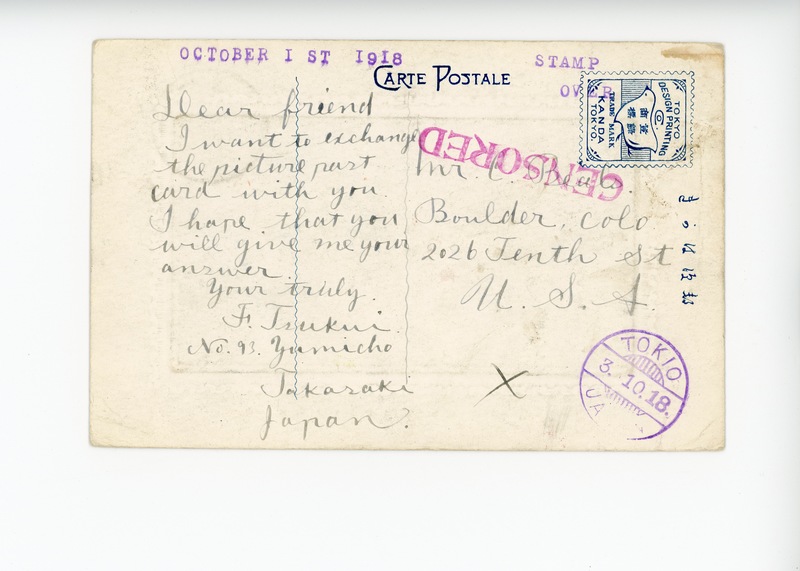 OCTOBER 1 ST 1918
STAMP
OVER
CARTE POSTALE
Dear friend
I want to exchange
the picture part
card with you.
I hope that you
will give me your
answer.
Your truly.
F. Tsukui.
No. 93. Yumicho
Takasaki
Japan.
CENSORED
Mr. C.
Boulder, Colo.
2026 Tenth St
U. S. A.
TOKYO
DESIGN PRINTING
TRADE MARK
KANDA
TOKYO
きかは便郵
TOKIO
3.10.18.
JA
X